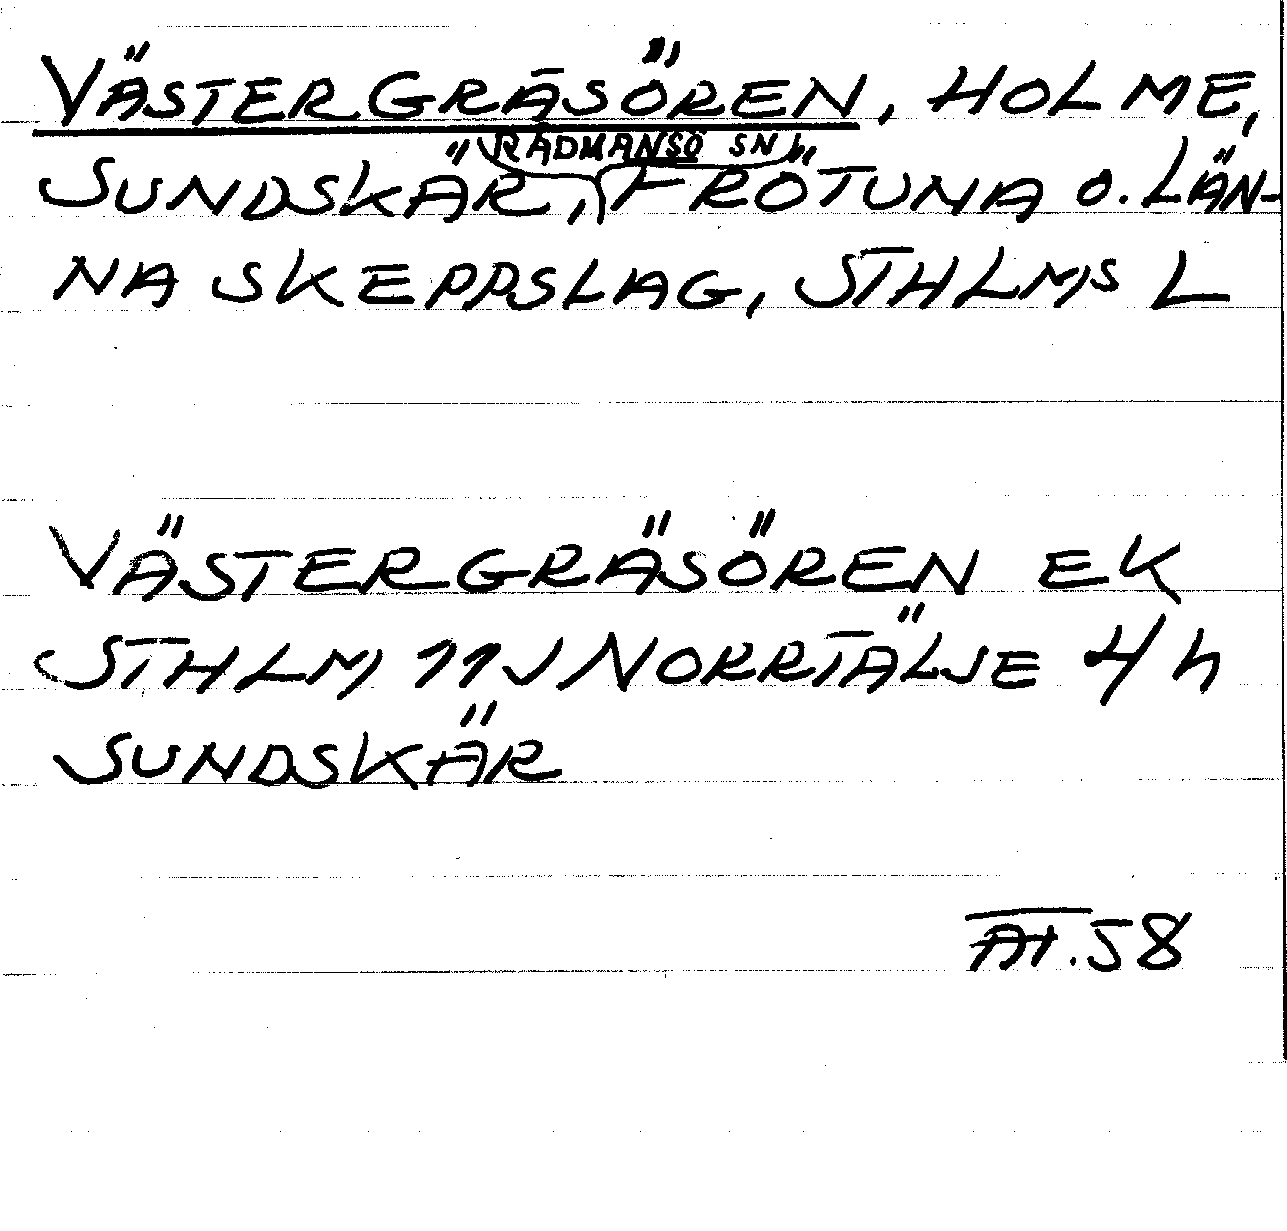 VÄSTERGRÄSÖREN, HOLME,
RÅDMANSÖ SN
SUNDSKÄR, FRÖTUNA O. LÄN-
NA SKEPPSLAG, STHLMS L
VÄSTERGRÄSÖREN EK
STHLM 11J NORRTÄLJE 4h
SUNDSKÄR
.58